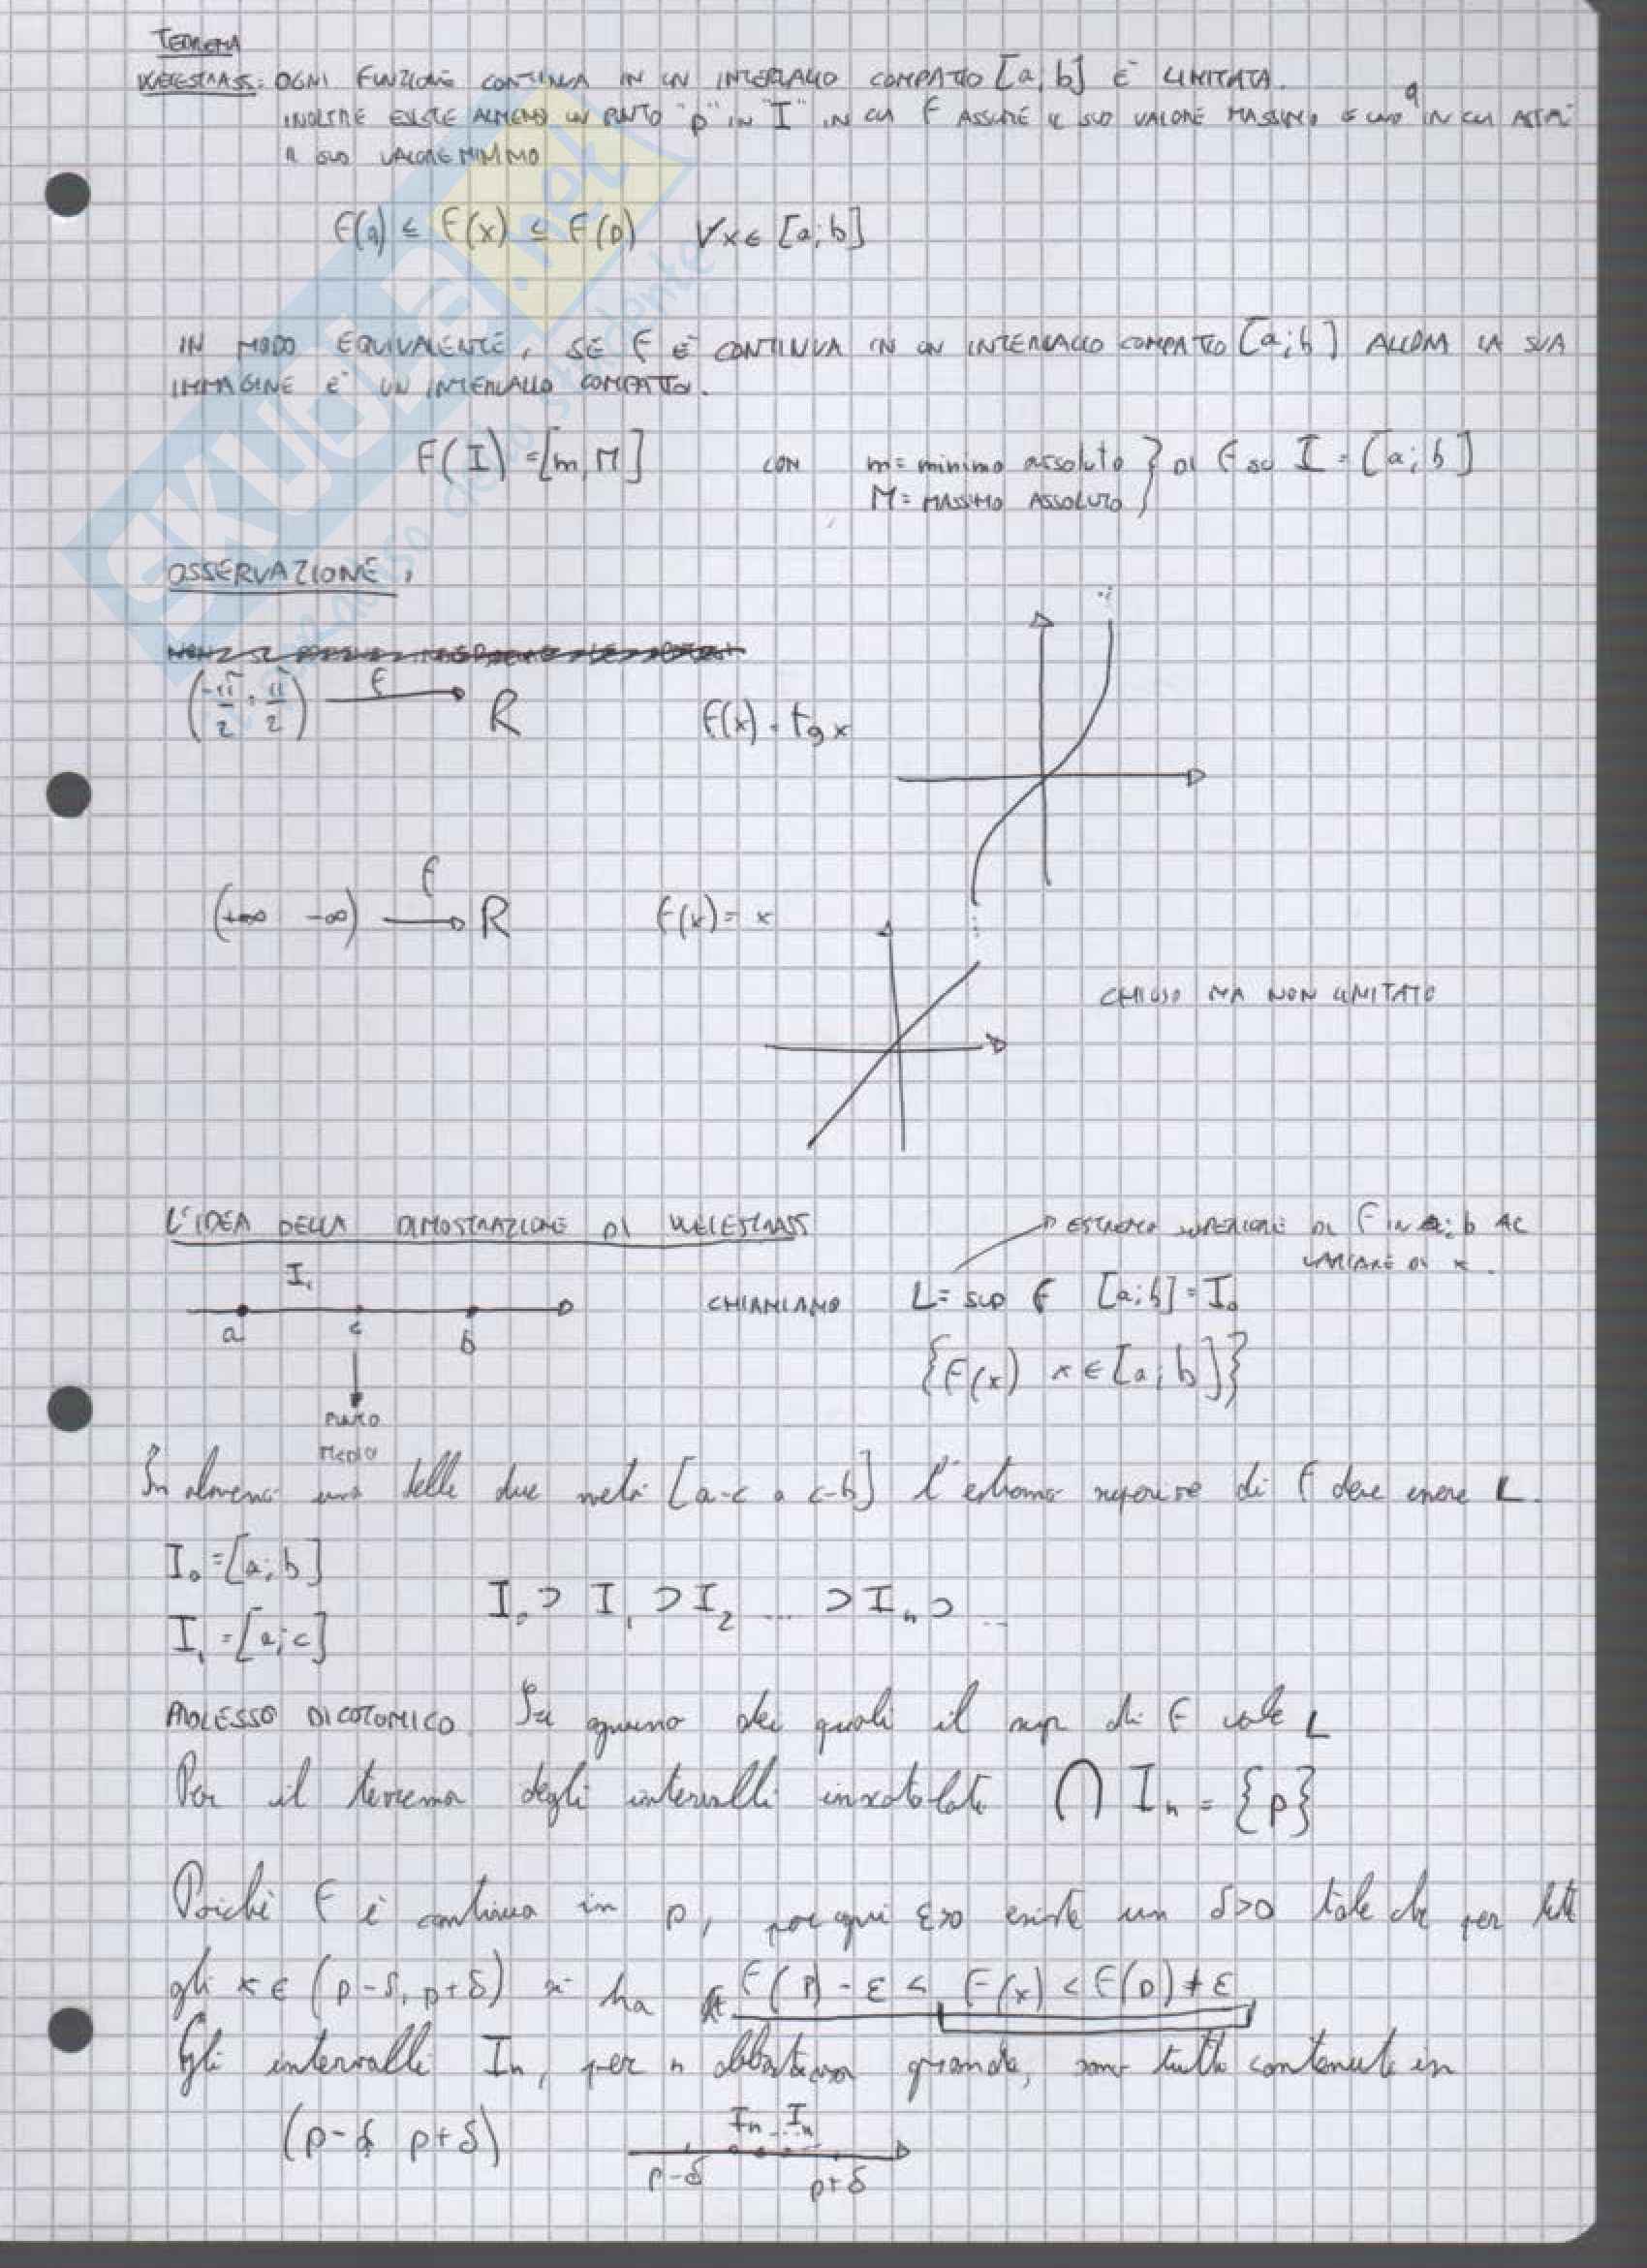 TEOREMA
WEIESTRASS: OGNI FUNZIONE CONTINUA IN UN INTERVALLO COMPATTO [a; b] È LIMITATA.
INOLTRE ESISTE ALMENO UN PUNTO "p" IN "I" IN CUI F ASSUME IL SUO VALORE MASSIMO E UNO q IN CUI
IL SUO VALORE MINIMO
F(q) ≤ F(x) ≤ F(p) ∀x∈ [a;b]
IN MODO EQUIVALENTE, SE F È CONTINUA IN UN INTERVALLO COMPATTO [a;b] ALLORA LA SUA
IMMAGINE È UN INTERVALLO COMPATTO.
F(I) = [m, M] CON m = minimo assoluto } DI F su I = [a; b]
M = MASSIMO ASSOLUTO
OSSERVAZIONE:
(-π/2 ; π/2) F → R F(x) = tg x
(+∞ -∞) f → R F(x) = x
CHIUSO MA NON LIMITATO
L'IDEA DELLA DIMOSTRAZIONE DI WEIESTRASS
ESTREMO SUPERIORE DI F IN a; b AL
VARIARE DI x.
I₁
CHIAMIAMO L = sup F [a;b] = I₀
a c b
{F(x) x ∈ [a; b]}
PUNTO
MEDIO
In almeno una delle due metà [a-c o c-b] l'estremo superiore di F deve essere L.
I₀ = [a; b]
I₀ ⊃ I₁ ⊃ I₂ ... ⊃ Iₙ ⊃ ...
I₁ = [a; c]
PROCESSO DICOTOMICO. Su ognuno dei quali il sup di F vale L
Per il teorema degli intervalli inscatolati ⋂ Iₙ = {p}
Poiché F è continua in p, per ogni ε>0 existe un δ>0 tale che per tutti
gli x ∈ (p-δ, p+δ) si ha F(p) - ε < F(x) < F(p) + ε
Gli intervalli Iₙ, per n abbastanza grande, sono tutti contenuti in
(p-δ p+δ)
Iₙ ... Iₙ
p-δ p+δ
SKUOLA.net